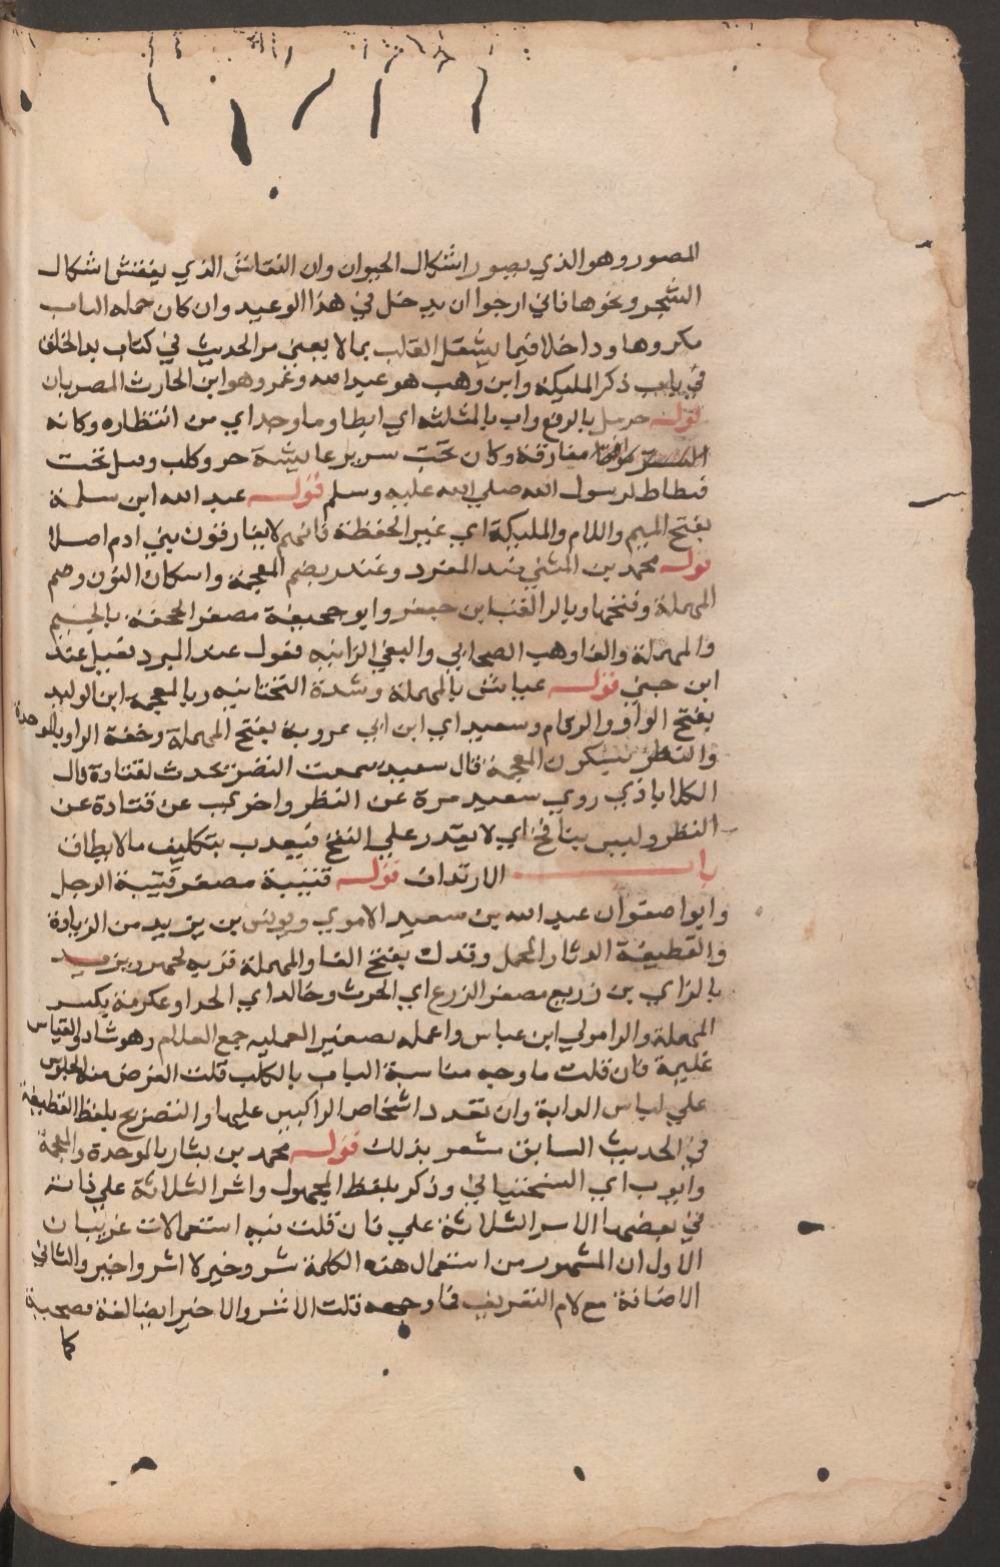 المصور وهو الذي يصور اشكال الحيوان وان النقاش الذي ينقش اشكال
الشجر ونحوها فاني ارجوا ان يدخل في هذا الوعيد وان كان جمله الباب
مكروها وداخلا فيما يشغل القلب بما لا يعني مر الحديث في كتاب بدا الخلق
في باب ذكر المليكة وابن وهب هو عبد الله وعمر وهو ابن الحارث المصريان
قوله جبريل بالرفع وراث بالمثلثه اي ابطا وما وجد اي من انتظاره وكانه
مفارقة وكان تحت سرير عايشة جرو كلب وقيل تحت
فسطاط لرسول الله صلي الله عليه وسلم قوله عبد الله ابن سلمة
بفتح الميم واللام والمليكة اي غير الحفظة فانهم لا يفارقون بني ادم اصلا
قوله محمد بن المثني ضد المفرد وغندر بضم المعجمة واسكان النون وضم
المهملة وفتحها وبالرا لقب ابن جعفر وابو جحيفة مصغر الجحفة بالجيم
والمهملة والفا وهب الصحابي والبغي الزانيه فعول عند المبرد فعيل عند
ابن جني قوله عياش بالمهملة وشدة التحتانيه وبالمعجمة ابن الوليد
بفتح الواو واللام وسعيد اي ابن ابي عروبة بفتح المهملة وخفة الرا وبالموحدة
والنظر بسكون المعجمة قال سعيد سمعت النضر يحدث لقتادة قال
الكلاباذي روي سعيد مرة عن النظر واخري عن قتادة عن
النظر وليس بنافخ اي لا يقدر علي النفخ فيعدب بتكليف ما لا يطاق
باب الارتداف قوله قتيبة مصغر قتبة الرجل
وابوا صفوان عبد الله بن سعيد الاموي ويونس بن يزيد من الزيادة
والقطيفة الدثار المخمل وفدك بفتح الفا والمهملة قريه لخيبر ويزيد
بالزاي بن زريع مصغر الزرع اي الحرث وخالد اي الحدا وعكرمة بكسر
المهملة والرا مولي ابن عباس واغيلمه تصغير الغلمه جمع الغلام وهو شاد والقياس
غليمة فان قلت ما وجه مناسبة الباب بالكتاب قلت الغرض منه الجلوس
علي لباس الدابة وان تعدد اشخاص الراكبين عليها والتصريح بلفظ القطيفة
في الحديث السابق مشعر بذلك قوله محمد بن بشار بالموحدة والمعجمة
وايوب اي السختياني وذكر بلفظ المجهول واشر الثلاثة علي ثلاثة
في بعضها الاشر الثلاثة علي فان قلت فيه استعمالات غريبان
الاول ان المشهور من استعمال هذه الكلمة شر وخير لا اشر واخير والثاني
الاضافة مع لام التعريف فما وجهه قلت الاشر والاخير ايضا لغة فصيحة
كا